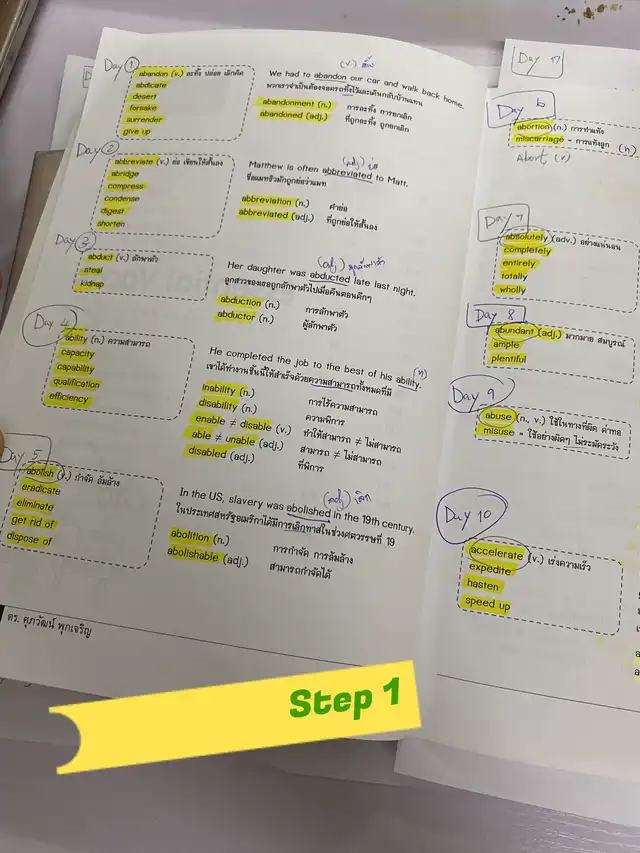 Day 1
abandon (v.) ละทิ้ง ปล่อย เลิกคิด
abdicate
desert
forsake
surrender
give up
(v.) ทิ้ง
We had to abandon our car and walk back home.
พวกเราจำเป็นต้องจอดรถทิ้งไว้และเดินกลับบ้านแทน
abandonment (n.) การละทิ้ง การยกเลิก
abandoned (adj.) ที่ถูกละทิ้ง ถูกยกเลิก
Day 2
abbreviate (v.) ย่อ เขียนให้สั้นลง
abridge
compress
condense
digest
shorten
(adj) ย่อ
Matthew is often abbreviated to Matt.
ชื่อแมทธิวมักถูกย่อว่าแมท
abbreviation (n.) คำย่อ
abbreviated (adj.) ที่ถูกย่อให้สั้นลง
Day 3
abduct (v.) ลักพาตัว
steal
kidnap
(adj)
Her daughter was abducted late last night.
ลูกสาวของเธอถูกลักพาตัวไปเมื่อคืนตอนดึกๆ
abduction (n.) การลักพาตัว
abductor (n.) ผู้ลักพาตัว
Day 4
ability (n.) ความสามารถ
capacity
capability
qualification
efficiency
(n)
He completed the job to the best of his ability.
เขาได้ทำงานชิ้นนี้ให้สำเร็จด้วยความสามารถทั้งหมดที่มี
inability (n.) การไร้ความสามารถ
disability (n.) ความพิการ
enable ≠ disable (v.) ทำให้สามารถ ≠ ไม่สามารถ
able ≠ unable (adj.) สามารถ ≠ ไม่สามารถ
disabled (adj.) ที่พิการ
Day 5
abolish (v.) กำจัด ล้มล้าง
eradicate
eliminate
get rid of
dispose of
(adj) เลิก
In the US, slavery was abolished in the 19th century.
ในประเทศสหรัฐอเมริกาได้มีการเลิกทาสในช่วงศตวรรษที่ 19
abolition (n.) การกำจัด การล้มล้าง
abolishable (adj.) สามารถกำจัดได้
ดร. ศุภวัฒน์ พุกเจริญ
Day 6
abortion (n.) การทำแท้ง
miscarriage = การแท้งลูก (n)
Abort (v)
Day 7
absolutely (adv.) อย่างแน่นอน
completely
entirely
totally
wholly
Day 8
abundant (adj.) มากมาย สมบูรณ์
ample
plentiful
Day 9
abuse (n., v.) ใช้ในทางที่ผิด ด่าทอ
misuse = ใช้อย่างผิดๆ ไม่ระมัดระวัง
Day 10
accelerate (v.) เร่งความเร็ว
expedite
hasten
speed up
Step 1